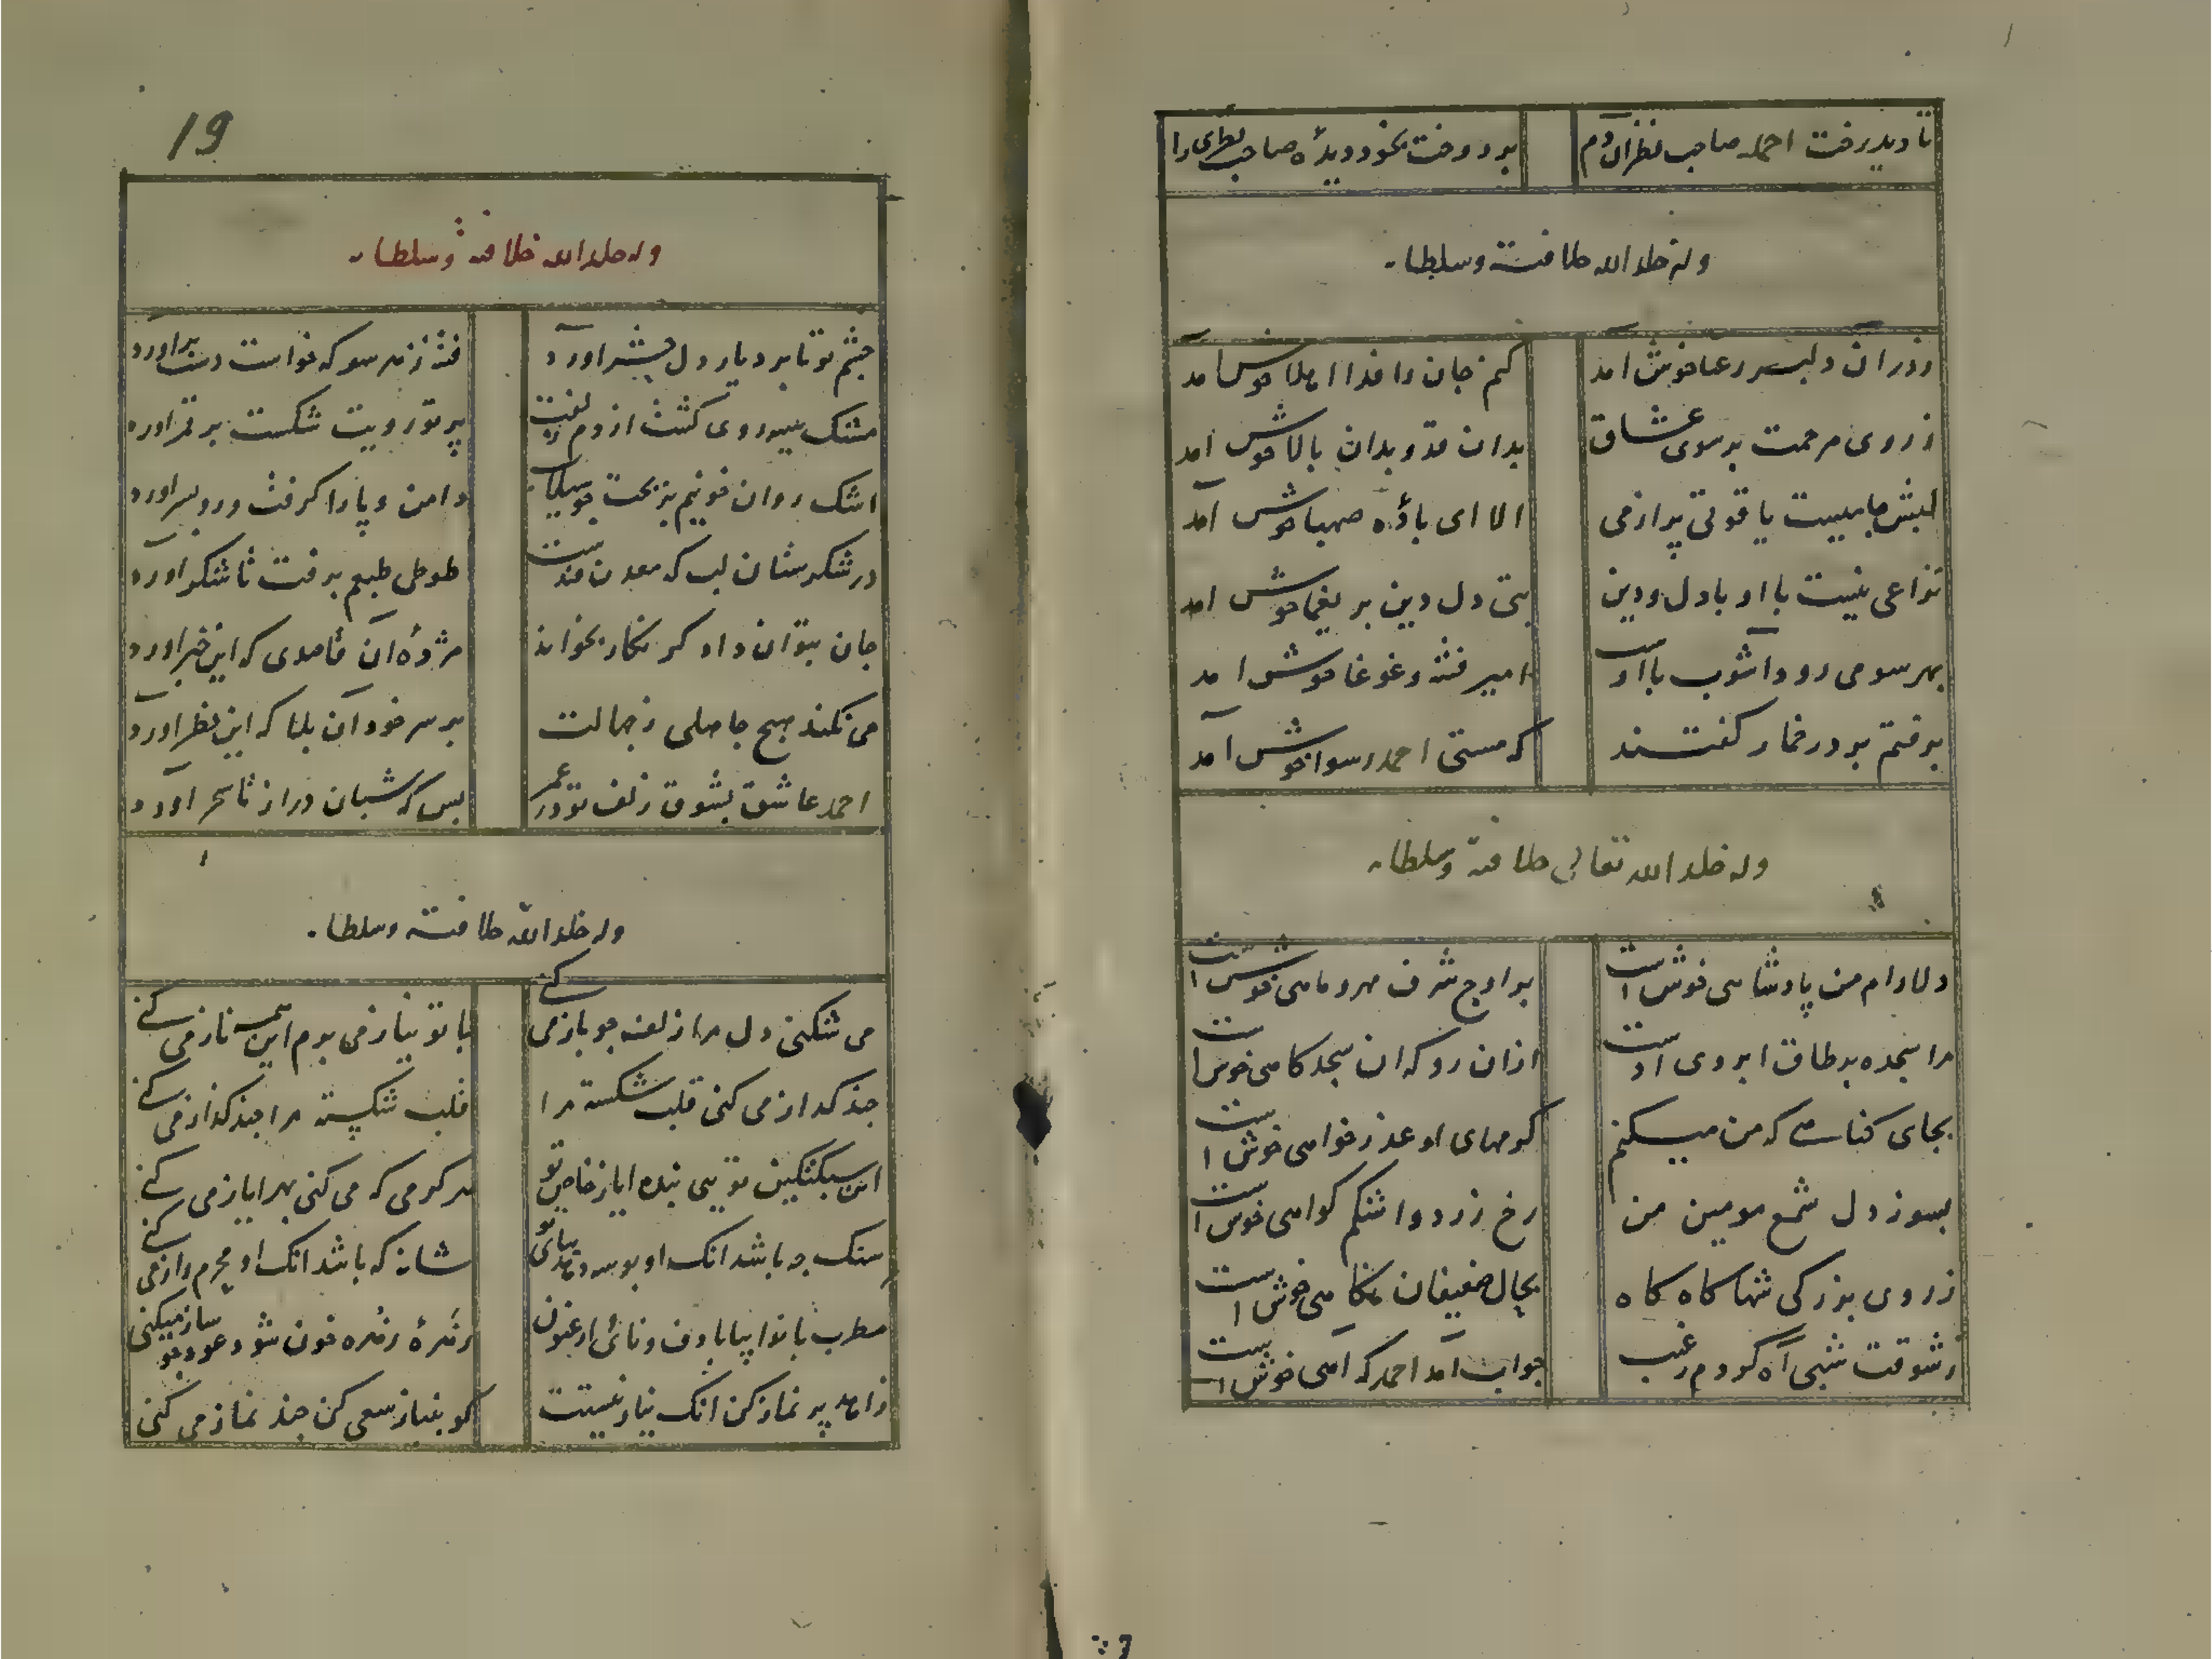 تا دید رفت احمد صاحب نظران دم
بر دوخت بخود دیدهٔ صاحب نظری را
وله خلد الله خلافته وسلطانه
ز در آن دلبر رعنا خوش آمد
کنم جان را فدا اهلا خوش آمد
ز روی مرحمت بر سوی عشاق
بدان قد و بدان بالا خوش آمد
لبش جامیست یاقوتی پر از می
الا ای بادهٔ صهبا خوش آمد
نزاعی نیست با او با دل و دین
بتی دل دین بر یغما خوش آمد
بهر سو می رود آشوب با اوست
امیر فتنه و غوغا خوش آمد
برفتم بر در خمار گفتند
که مستی احمد رسوا خوش آمد
وله خلد الله تعالی خلافته وسلطانه
دلارام من پادشاهی خوش است
بر اوج شرف مهر و ماهی خوش است
مرا سجده بر طاق ابروی اوست
ازان رو که ان سجدکاهی خوش است
بجای کناهی که من میکنم
کرمهای او عذرخواهی خوش است
بسوز دل شمع مومین من
رخ زرد و اشکم کواهی خوش است
ز روی بزرکی شها کاه کاه
بحال ضعیفان نکاهی خوش است
ز شوقت شبی آه کردم ز غیب
جواب آمد احمد که آهی خوش است
19
وله خلد الله خلافته وسلطانه
چشم تو تا بر دیار دل حشر آورد
فتنه ز هر سو که خواست دست برآورد
مشک سیه روی کشت از دم زلفت
پرتو رویت شکست بر قمر آورد
اشک روان خونیم بزیحت چو سیلاب
دامن و پا را کرفت و رو بسر آورد
در شکرستان لب که معدن قندست
طوطی طبعم برفت تا شکر آورد
جان بتوان داد کر نکار بخواند
مژدهٔ آن قاصدی که این خبر آورد
می نکند هیچ حاصلی ز جمالت
بر سر خود آن بلا که این نظر آورد
احمد عاشق بشوق زلف تو در عمر
بس که شبان دراز تا سحر آورد
وله خلد الله خلافته وسلطانه
می شکنی دل مرا زلف چو باز می کنی
با تو نیاز می برم این همه ناز می کنی
چند کداز می کنی قلب شکسته مرا
قلب شکسته مرا چند کداز می کنی
این سبکتکین تویی بنده ایاز خاص تو
هر کرمی که می کنی بهر ایاز می کنی
سنک چه باشد انک او بوسه دهد بپای تو
شانه که باشد انک او محرم راز می کنی
مطرب با نوا بیا با دف و نای ارغنون
زهرهٔ زهره خون شود عود چو ساز میکنی
زاهد پر نماز کن انک نیاز نیستت
کو بنیاز سعی کن چند نماز می کنی